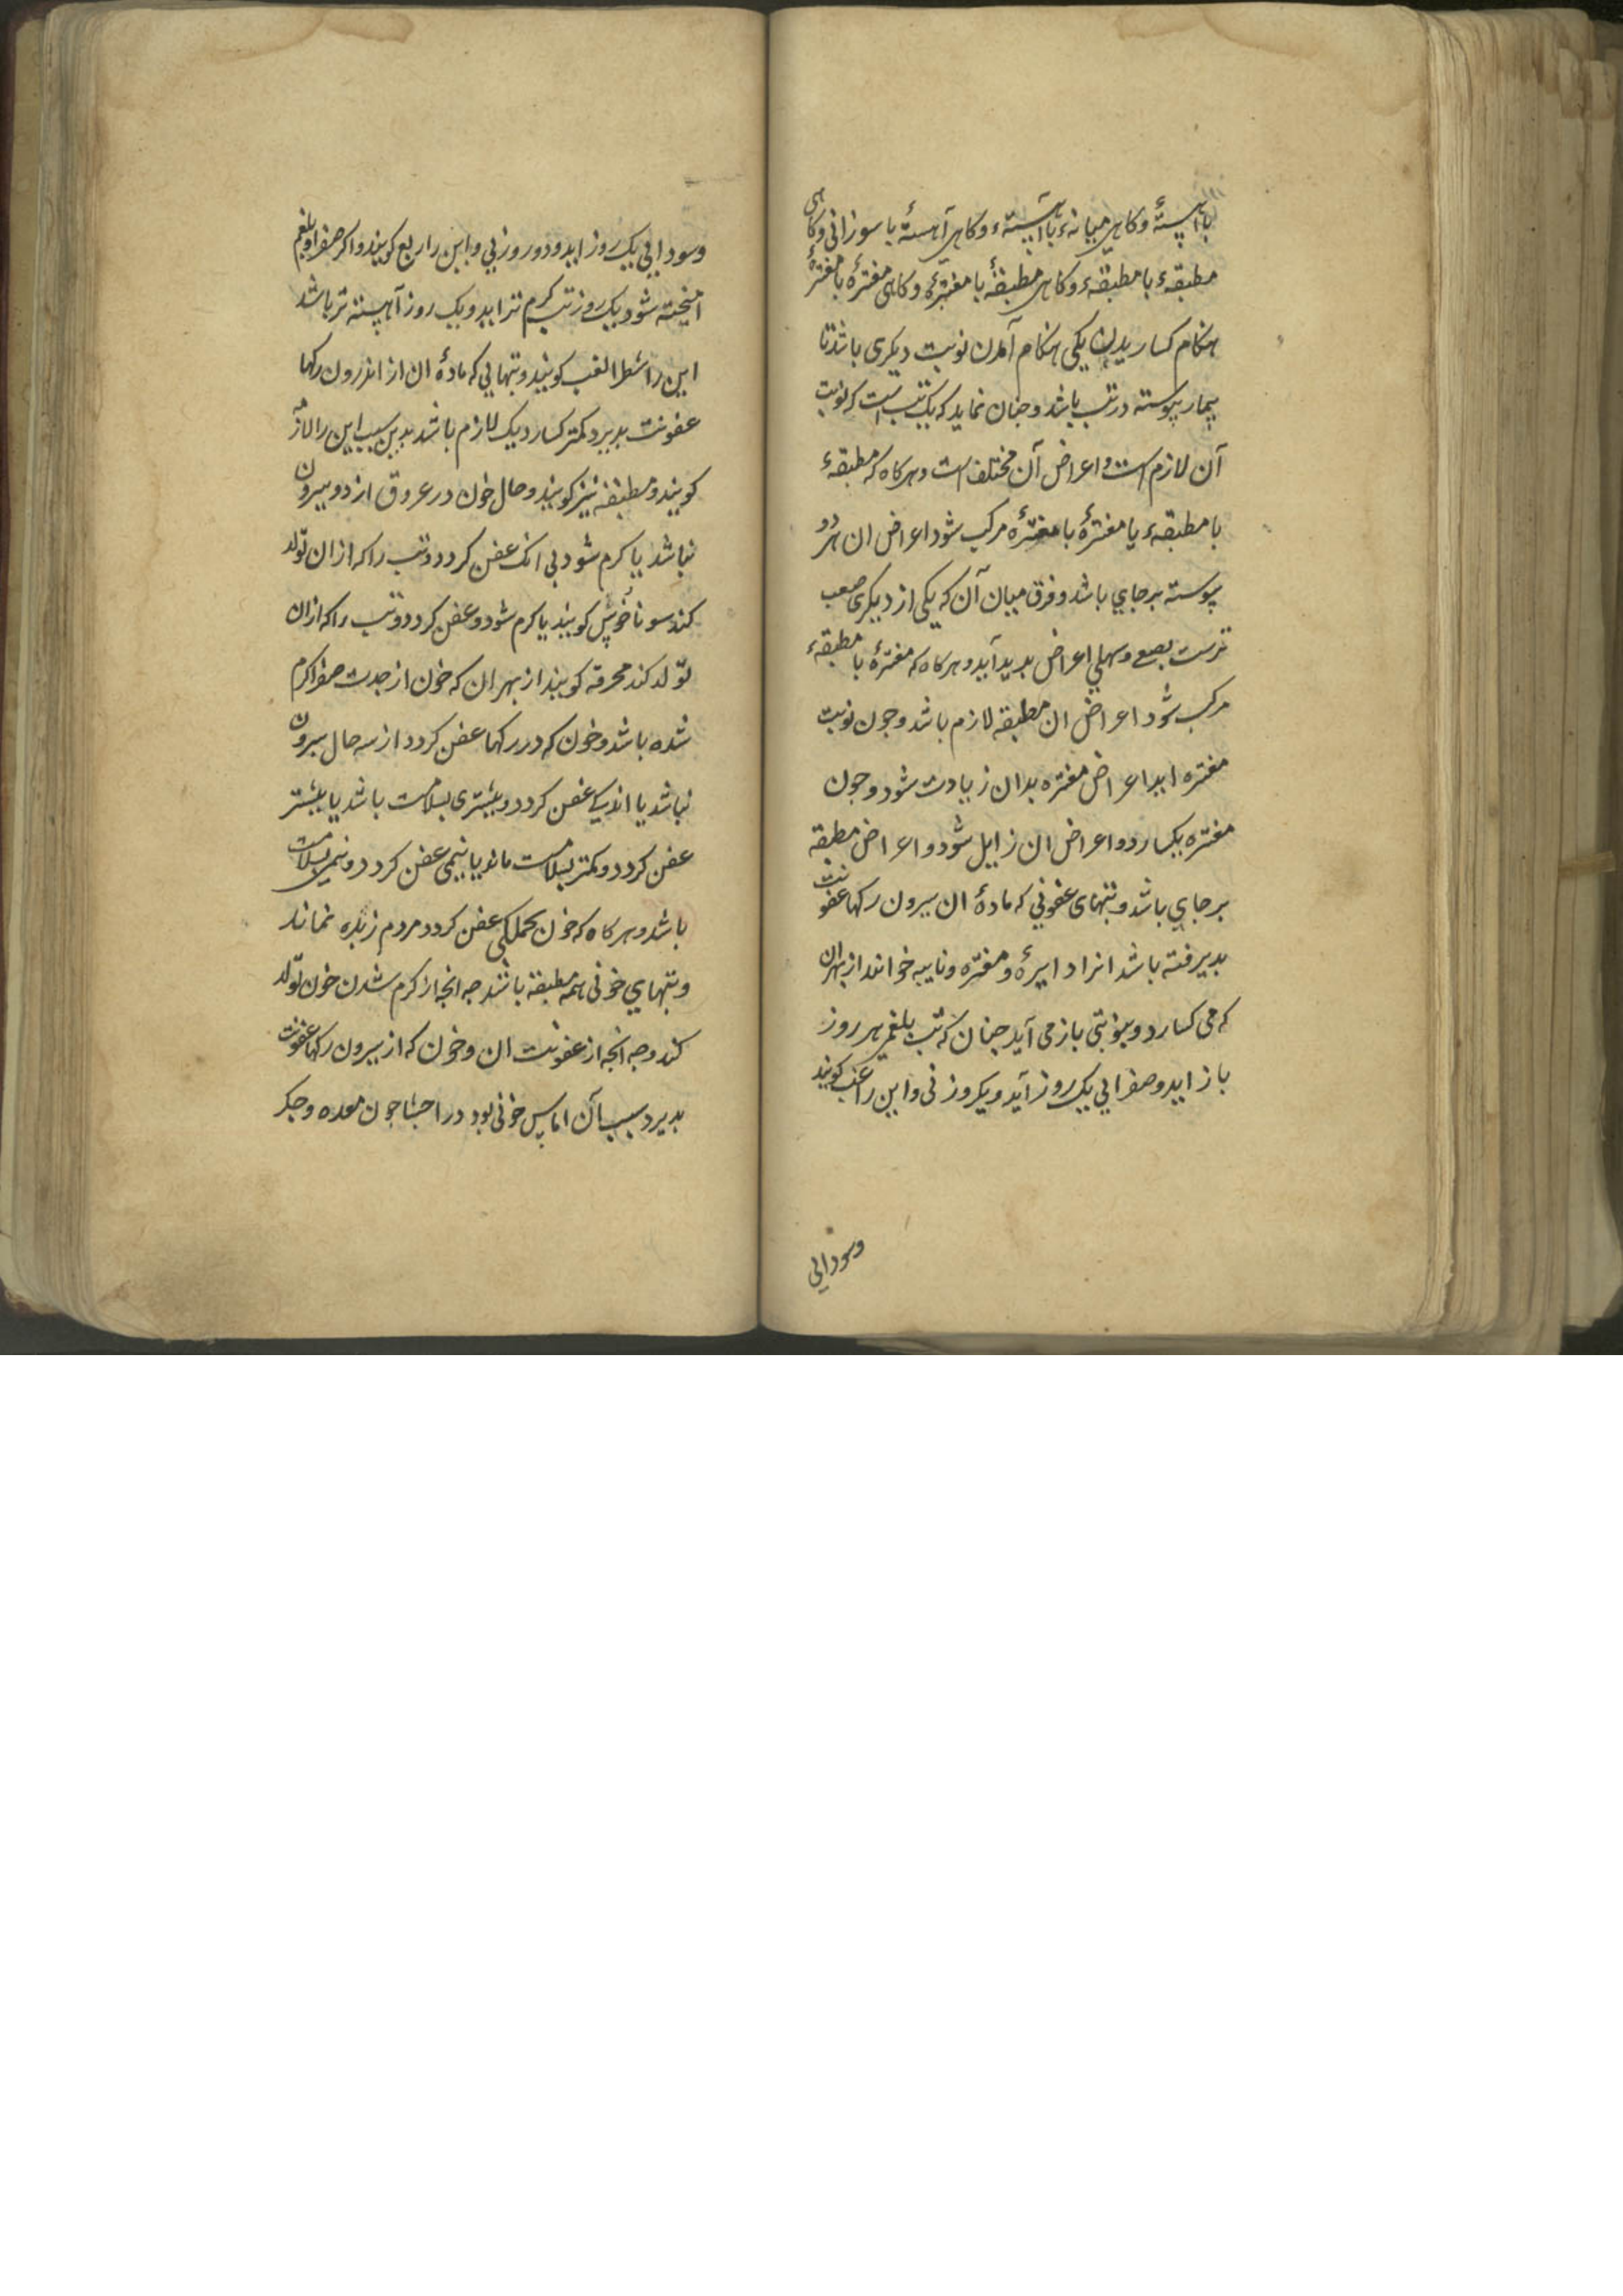 با آهستهٔ و کاهی میانهء با آهستهء و کاهی آهستهٔ با سوزانی و کاهی
مطبقهء با مطبقهء و کاهی مطبقهٔ با مفترهٔ و کاهی مفترهٔ با مفترهٔ
هنکام کساریدن یکی هنکام آمدن نوبت دیکری باشد تا
بیمار پیوسته در تب باشد و جنان نماید که یک تب است که نوبت
آن لازم است و اعراض آن مختلف است و هرکاه که مطبقهء
با مطبقهء یا مفترهٔ با مفترهٔ مرکب شود اعراض ان هر دو
پیوسته بر جای باشد و فرق میان آن که یکی از دیکری صعب
ترست بصعی و سهلی اعراض بدید آید و هرکاه که مفترهٔ با مطبقهء
مرکب شود اعراض ان مطبقه لازم باشد و جون نوبت
مفتره اید اعراض مفتره بدان زیادت شود و جون
مفتره بکسارد و اعراض ان زایل شود و اعراض مطبقه
بر جای باشد و تبهای عفونی که مادهٔ ان بیرون رکها عفونت
بدیرفته باشد انرا دایرهٔ و مفتره و نایبه خوانند از بهر ان
که می کسارد و بنوبتی باز می آید جنان که تب بلغمی هر روز
باز اید و صفرایی یک روز آید و یکروز نی و این را غب کویند
وسودایی
وسودایی یک روز اید و دو روز نی و این را ربع کویند و اکر صفرا و بلغم
امیخته شود یک روز تب کرم تر اید و یک روز آهسته تر باشد
این را شطر الغب کویند و تبهایی که مادهٔ ان از اندرون رکها
عفونت بدیرد کمتر کسارد یک لازم باشد بدین سبب این را لازمه
کویند و مطبقه نیز کویند و حال خون در عروق از دو بیرون
نباشد یا کرم شود بی انک عفن کردد و تب را که از ان تولد
کند سوناخوس کویند یا کرم شود و عفن کردد و تب را که از ان
تولد کند محرقه کویند از بهر ان که خون از حدت صفرا کرم
شده باشد و خون که در رکها عفن کردد از سه حال بیرون
نباشد یا اندکی عفن کردد و بیشتری بسلامت باشد یا بیشتر
عفن کردد و کمتر بسلامت ماند یا نیمی عفن کردد و نیمی بسلامت
باشد و هرکاه که خون بجملکی عفن کردد مردم زنده نماند
و تبهای خونی همه مطبقه باشد جه انجه از کرم شدن خون تولد
کند و جه انجه از عفونت ان و خون که از بیرون رکها عفونت
بدیرد سبب آن اماس خونی بود در احشا جون معده و جکر